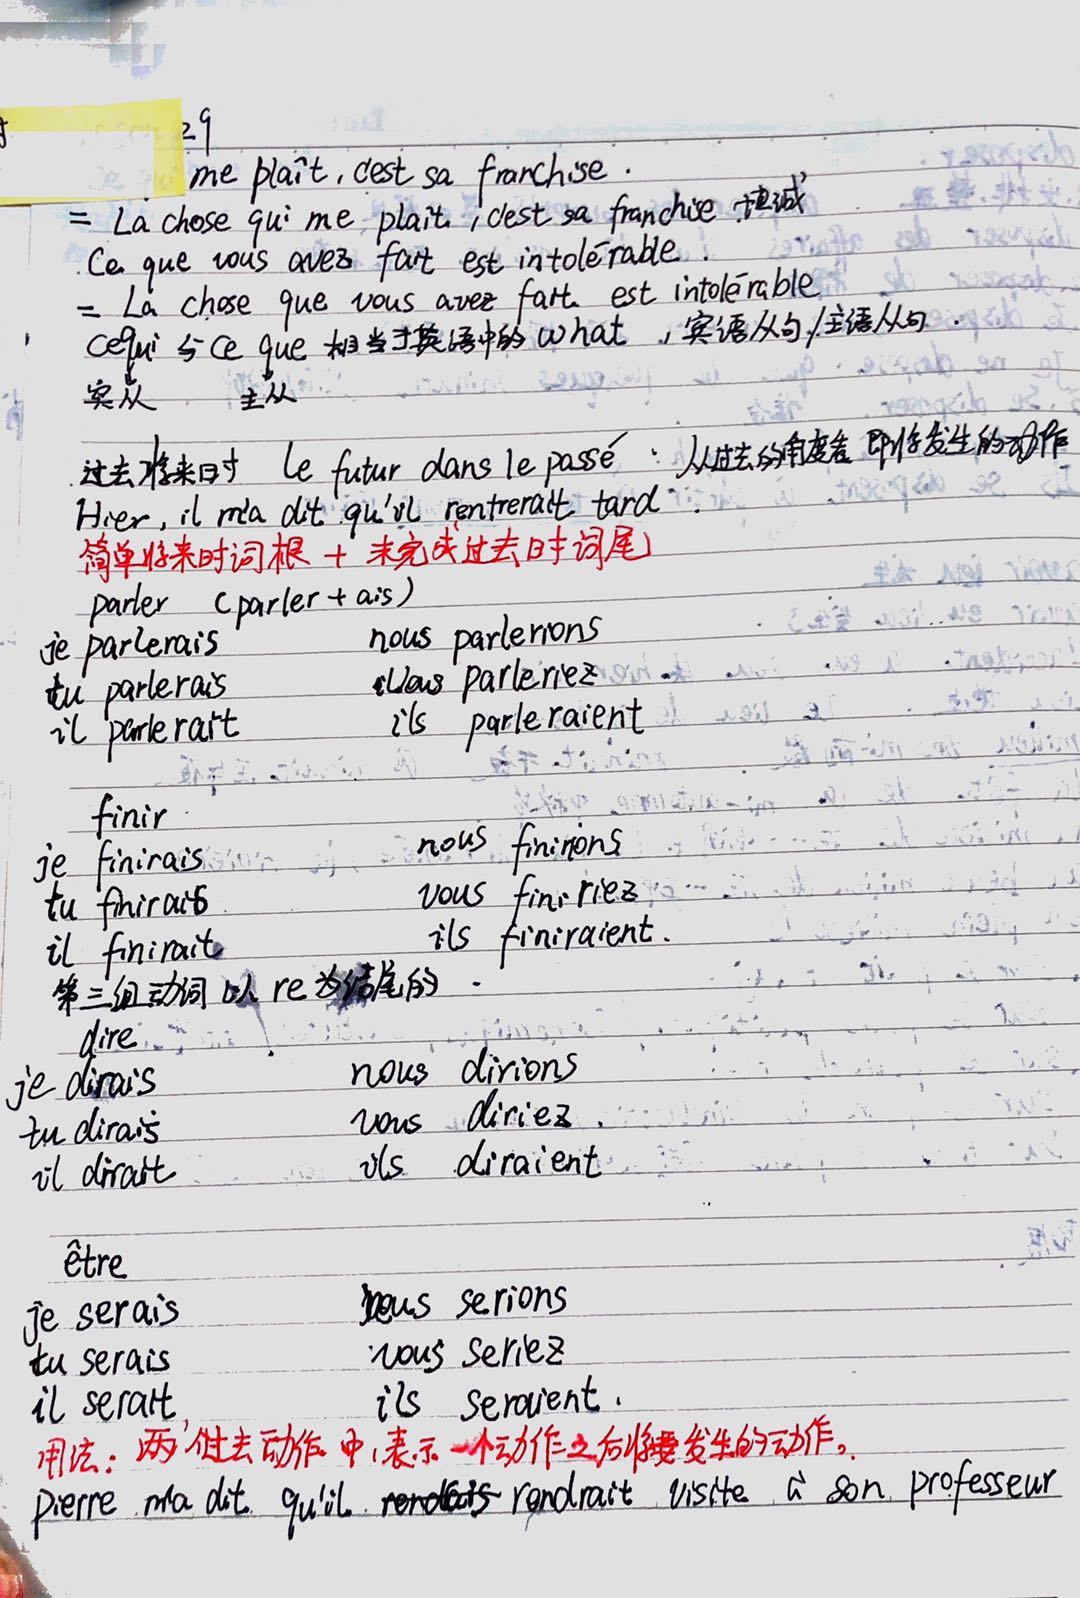 29
me plaît, c'est sa franchise.
= La chose qui me plaît, c'est sa franchise 坦诚
Ce que vous avez fait est intolérable.
= La chose que vous avez fait est intolérable
ce qui 与 ce que 相当于英语中的 what, 宾语从句/主语从句.
宾从 主从
过去将来时 le futur dans le passé: 从过去的角度看 即将发生的动作
Hier, il m'a dit qu'il rentrerait tard.
简单将来时词根 + 未完成过去时词尾
parler (parler + ais)
je parlerais nous parlerions
tu parlerais vous parleriez
il parlerait ils parleraient
finir
je finirais nous finirions
tu finirais vous finiriez
il finirait ils finiraient.
第三组动词 以 re 为结尾的.
dire
je dirais nous dirions
tu dirais vous diriez.
il dirait ils diraient
être
je serais nous serions
tu serais vous seriez
il serait ils seraient.
用法: 两个过去动作中, 表示一个动作之后将要发生的动作。
pierre m'a dit qu'il rendrait visite à son professeur